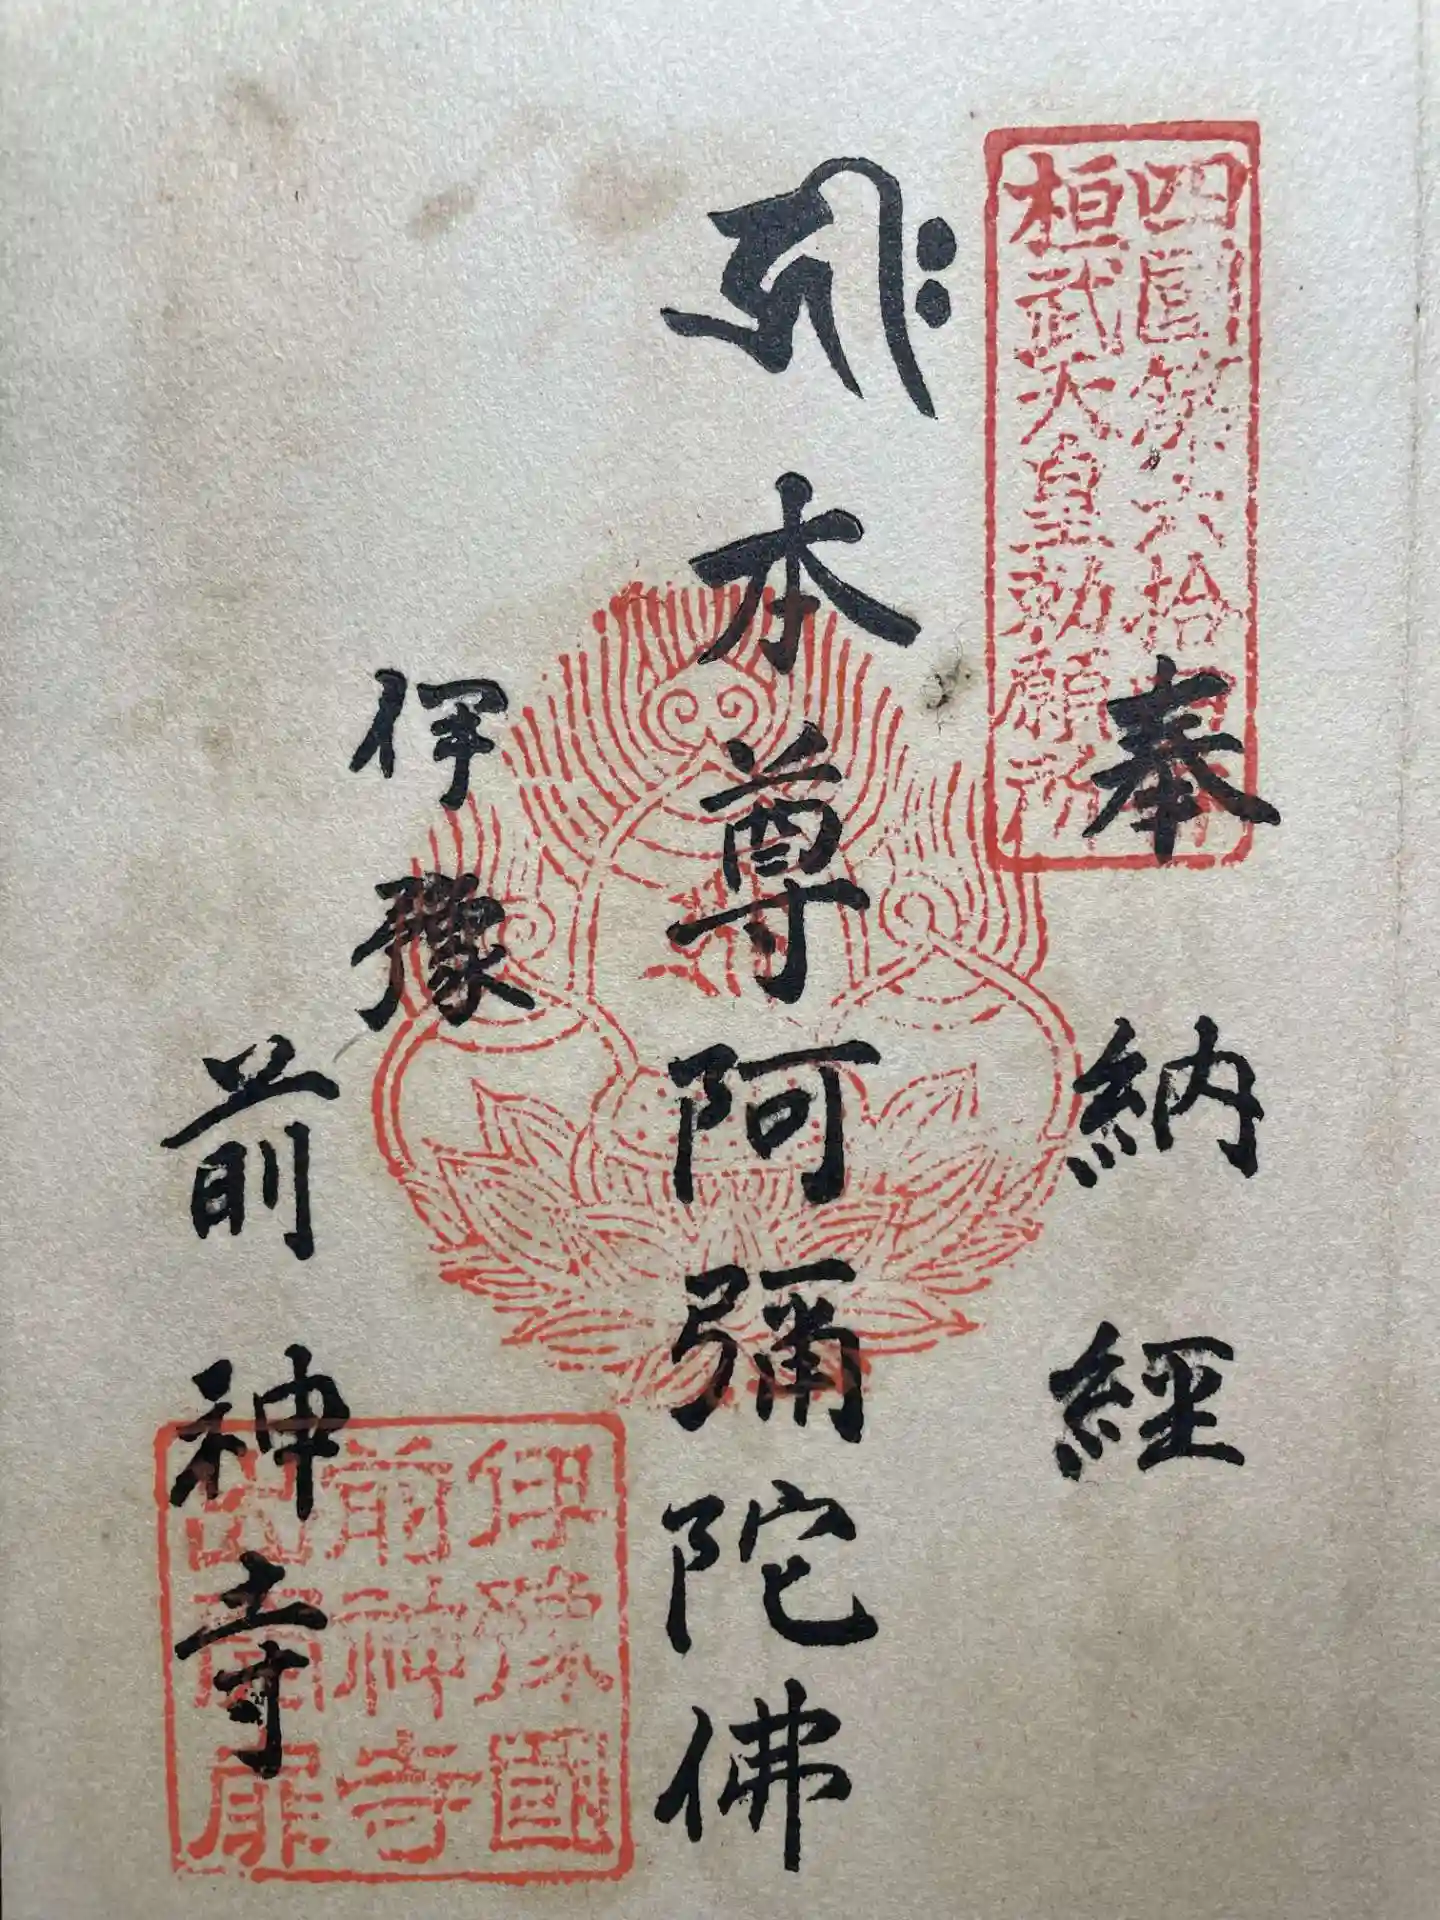 四國第六拾
桓武天皇勅願所
奉納經
𑖮𑖿𑖨𑖱𑖾
本尊阿彌陀佛
伊豫
前神寺
伊豫國
前神寺